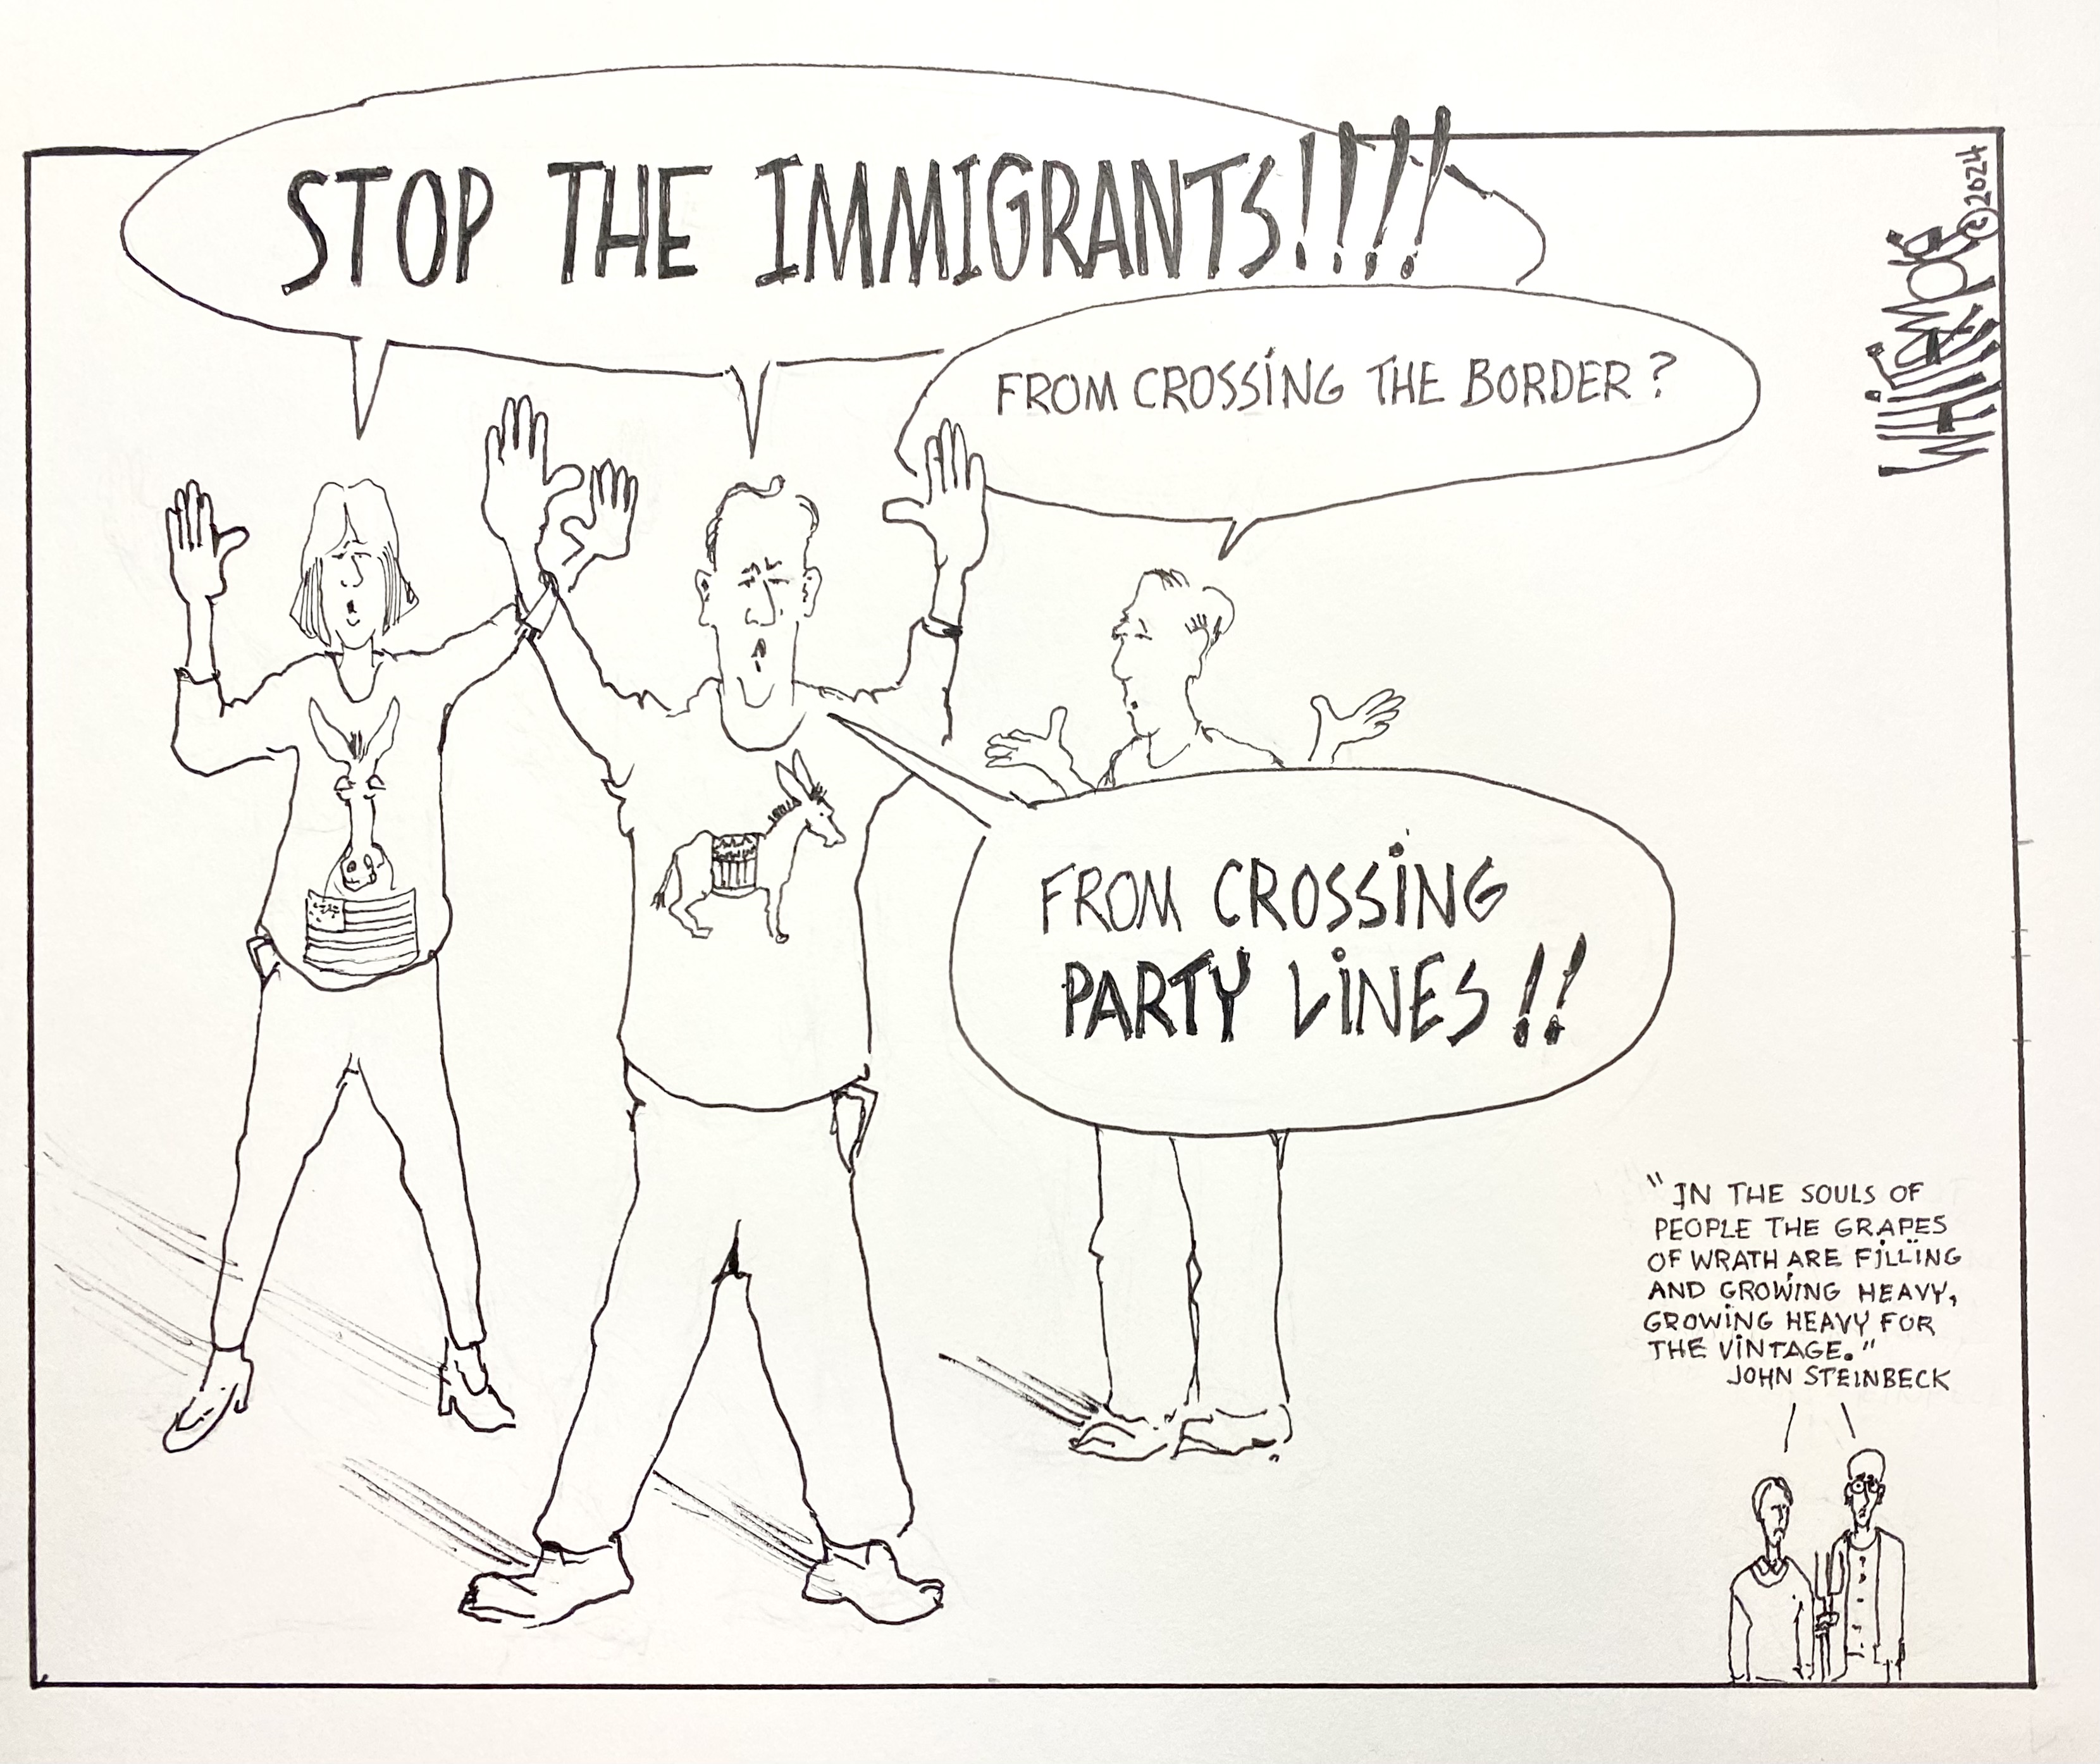 STOP THE IMMIGRANTS!!!!
FROM CROSSING THE BORDER?
FROM CROSSING
PARTY LINES!!
"IN THE SOULS OF
PEOPLE THE GRAPES
OF WRATH ARE FILLING
AND GROWING HEAVY,
GROWING HEAVY FOR
THE VINTAGE."
JOHN STEINBECK
©2024